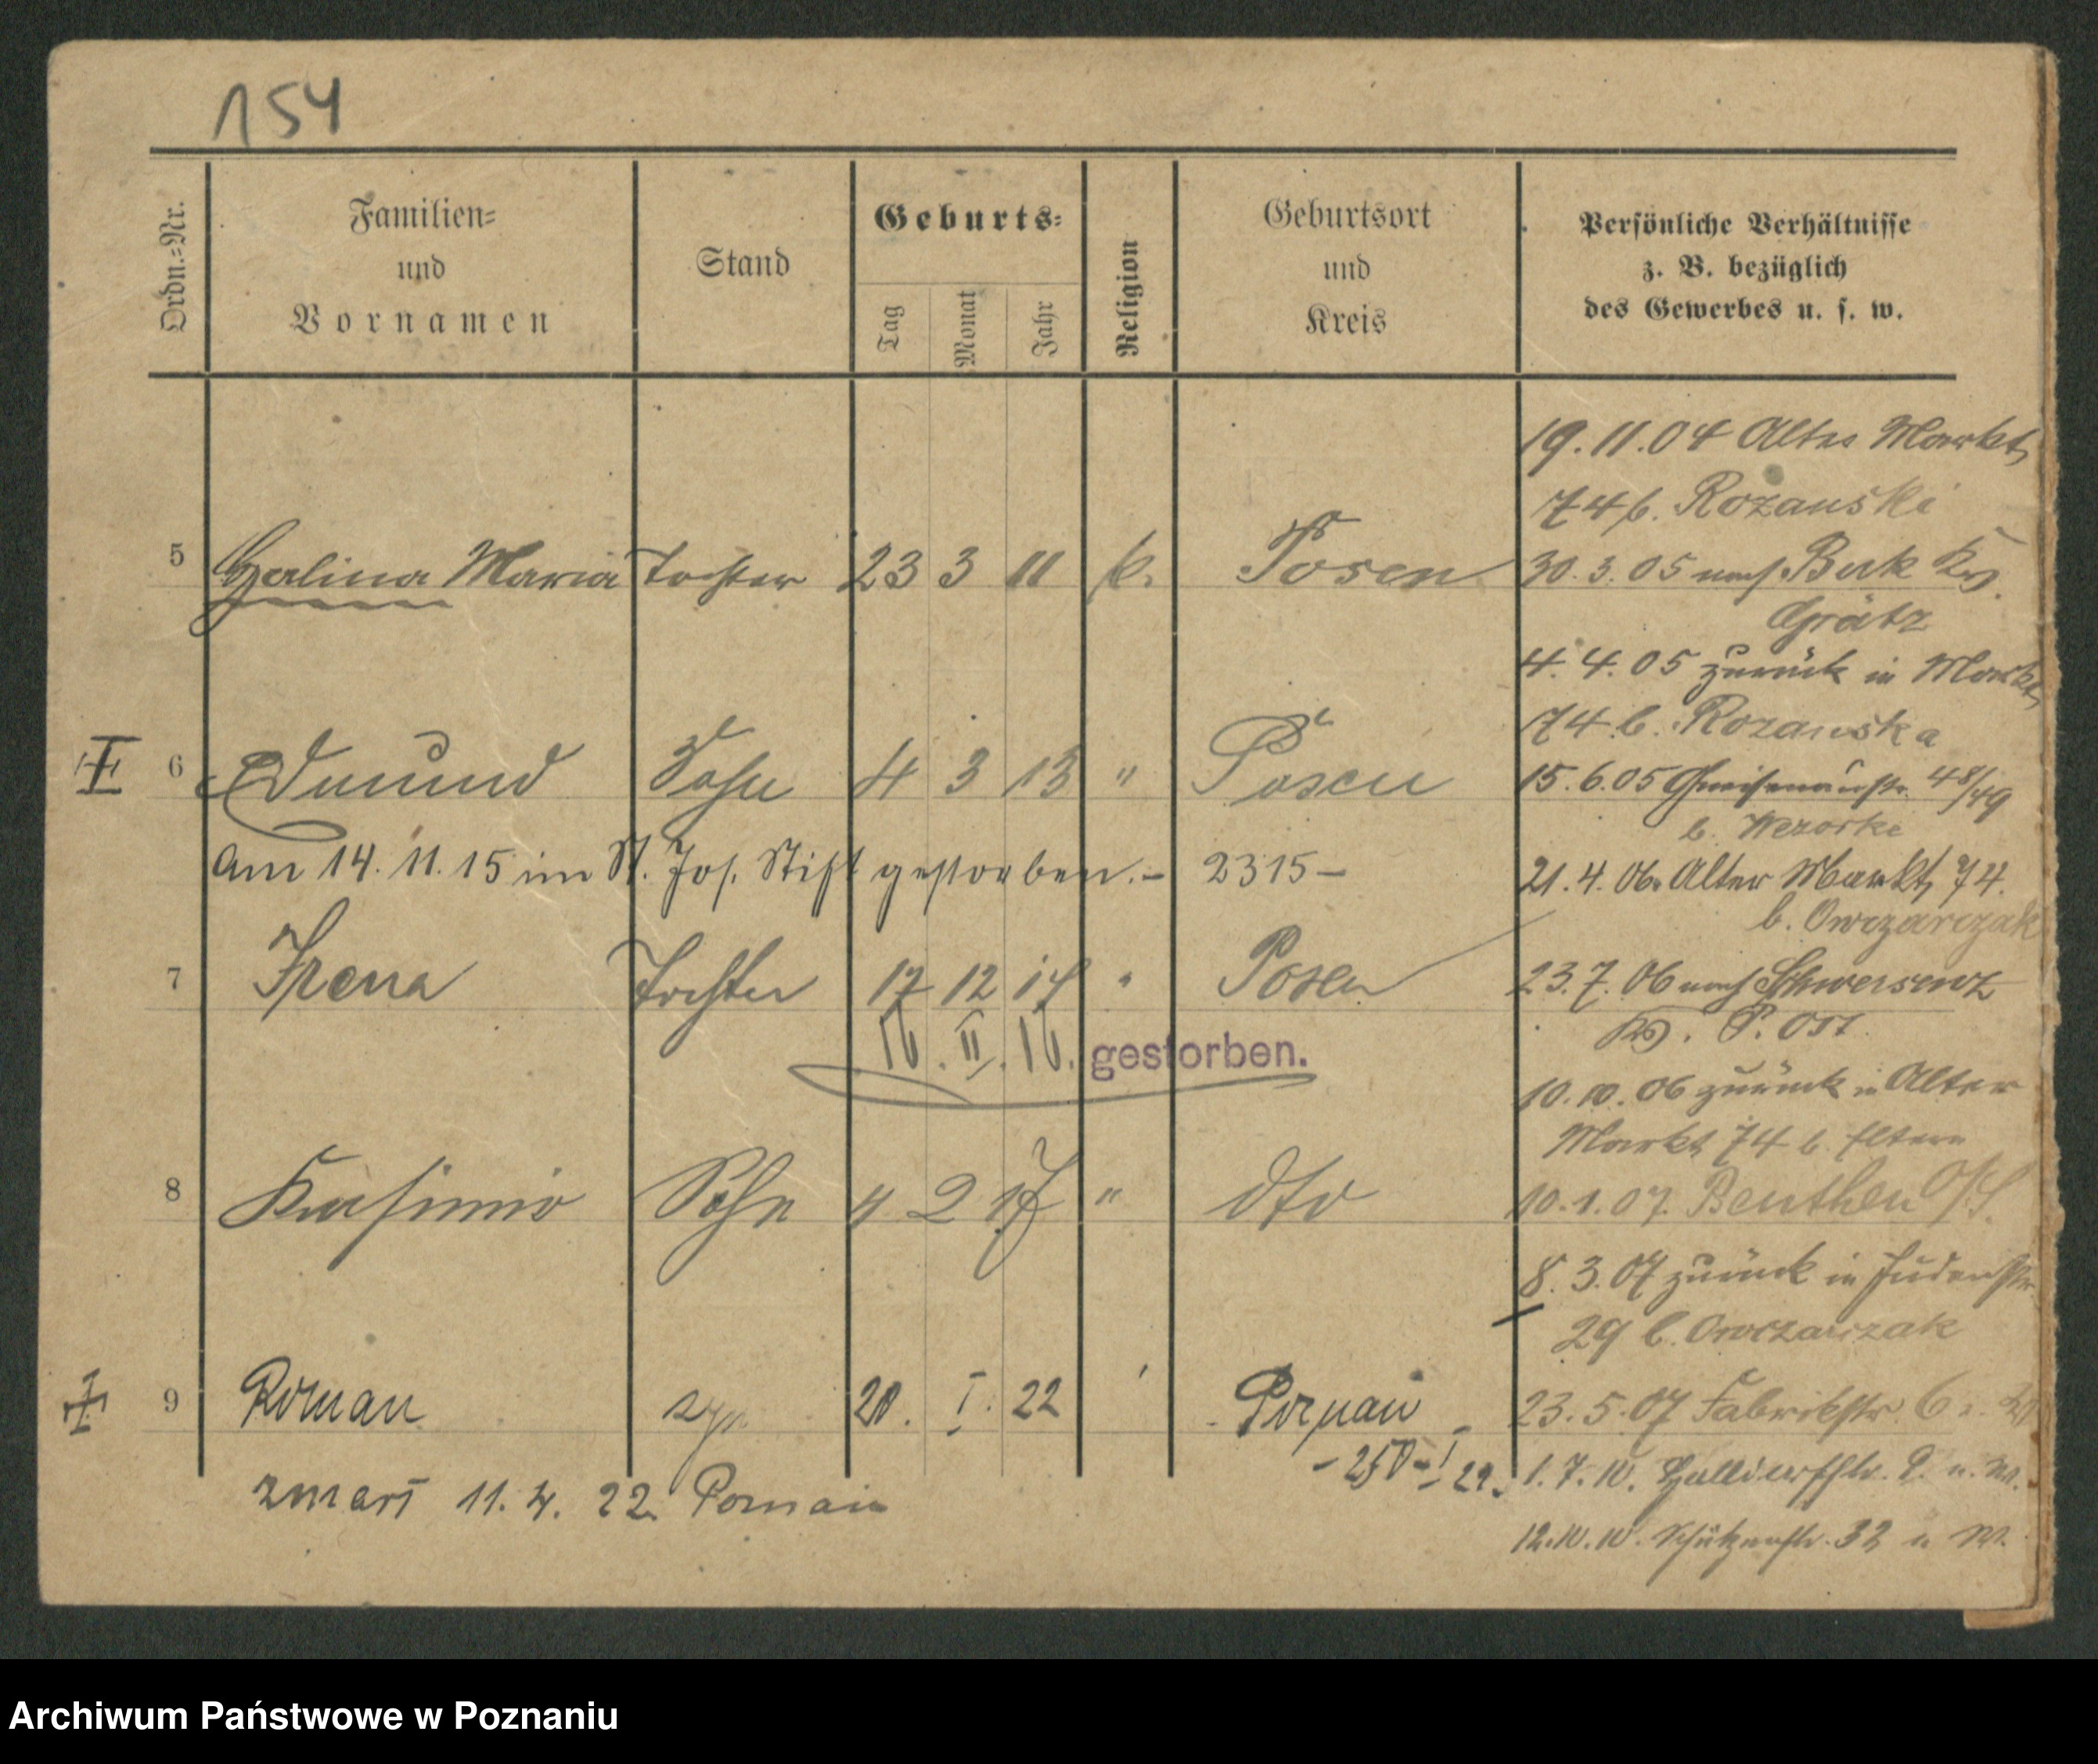 154
Ordn.=Nr.
Familien=
und
Vornamen
Stand
Geburts=
Tag
Monat
Jahr
Religion
Geburtsort
und
Kreis
Persönliche Verhältnisse
z. B. bezüglich
des Gewerbes u. s. w.
5 Halina Maria Tochter 23 3 11 k. Posen
6 Edmund Sohn 4 3 13 " Posen
am 14. 11. 15 im St. Jos. Stift gestorben. – 2315 –
7 Irena Tochter 17 12 14 " Posen
16. II. 16. gestorben.
8 Kasimir Sohn 4 2 17 " dto
9 Roman syn 20. I. 22 ' Poznań
- 250 - I 22.
zmarł 11. 4. 22 Poznań
19. 11. 04 Alter Markt
74 b. Rozanski
30. 3. 05 nach Buk Krs.
Grätz
4. 4. 05 zurück in Markt
74 b. Rozanska
15. 6. 05 Gneisenaustr. 48/49
b. Wezorke
21. 4. 06. Alter Markt 74.
b. Owczarczak
23. 7. 06 nach Schwersenz
Krs. P. Ost.
10. 10. 06 zurück in Alter
Markt 74 b. Eltern
10. 1. 07. Beuthen O/S.
8. 3. 07 zurück in Judenstr.
29 b. Owczarczak
23. 5. 07 Fabrikstr. 6
1. 7. 10.
12. 10. 10. Schützenstr. 32 u. W.
Archiwum Państwowe w Poznaniu